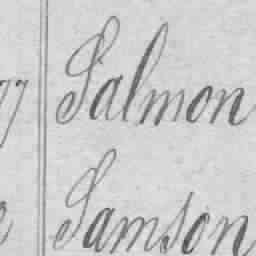 Salmon
Samson